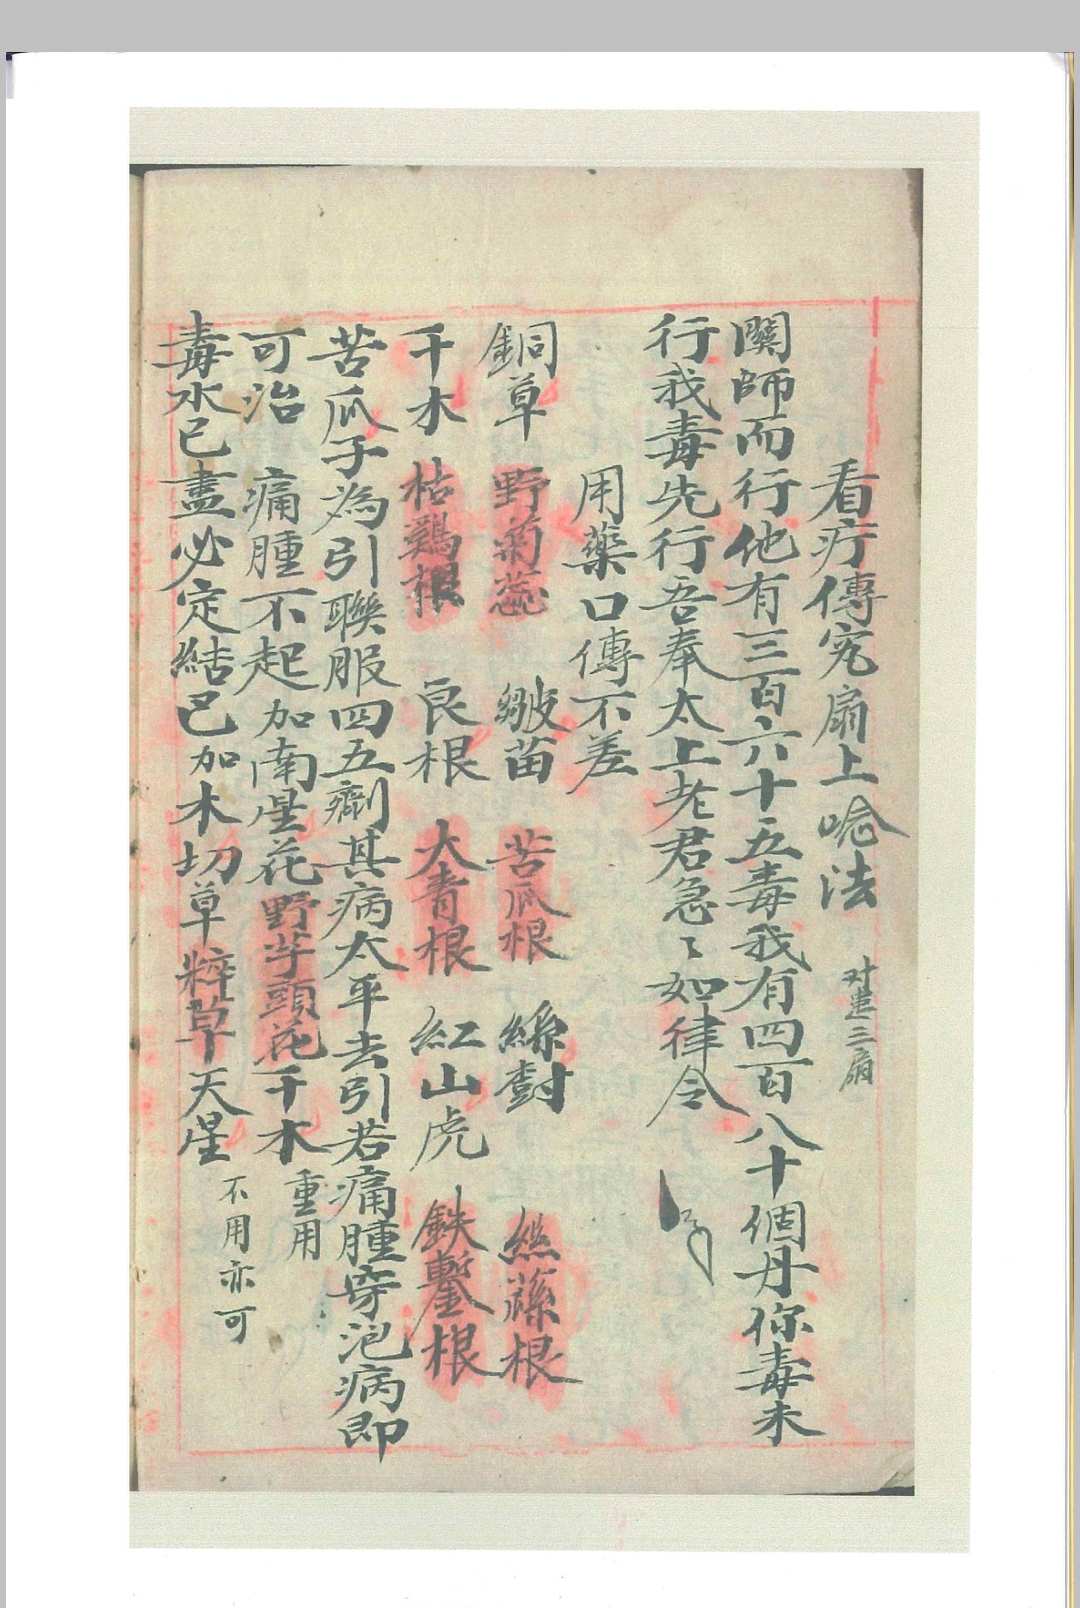 看疔傳究扇上唸法 对患三扇
關師而行他有三百六十五毒我有四百八十個丹你毒未
行我毒先行吾奉太上老君急〻如律令
用藥口傳不差
銅草 野菊蕊 皺苗 苦瓜根 絲對 絲蓀根
千木 枯鷄根 良根 大青根 紅山虎 鉄鏨根
苦瓜子為引聯服四五劑其病太平去引若痛腫穿泡病即
可治 痛腫不起加南星花野芋頭花千木 重用
毒水已盡必定結巴加木切草粹草天星 不用亦可